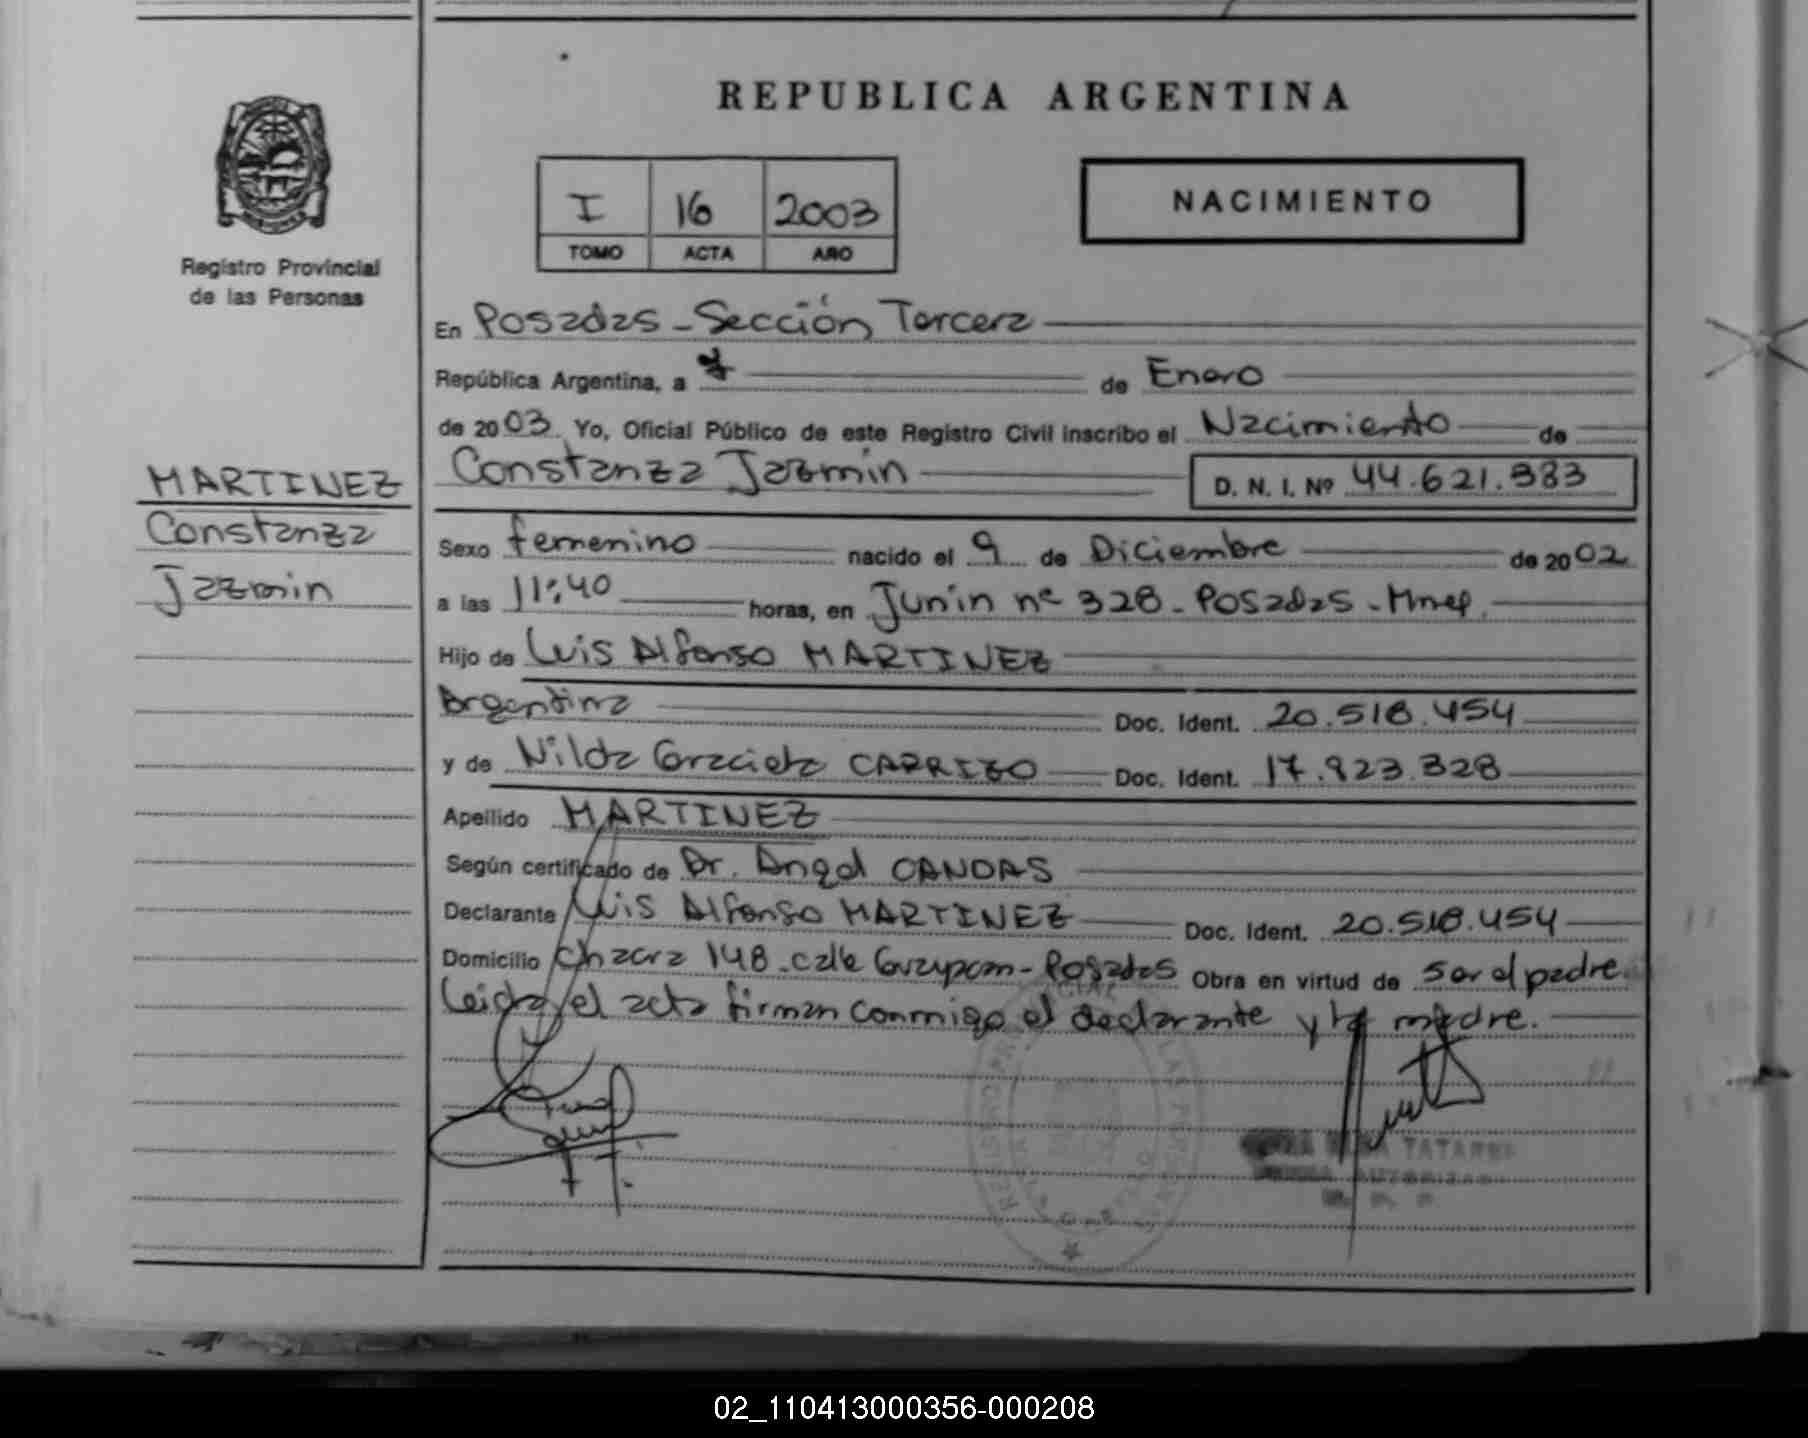 REPUBLICA ARGENTINA
I 16 2003
TOMO ACTA AÑO
NACIMIENTO
Registro Provincial
de las Personas
MARTINEZ
Constanza
Jazmin
En Posadas - Sección Tercera
República Argentina, a 7 de Enero
de 2003 Yo, Oficial Público de este Registro Civil inscribo el Nacimiento de
Constanza Jazmin D. N. I. Nº 44.621.383
Sexo femenino nacido el 9 de Diciembre de 2002
a las 11:40 horas, en Junin nº 328 - Posadas - Mnes.
Hijo de Luis Alfonso MARTINEZ
Argentina Doc. Ident. 20.518.454
y de Nilda Graciela CARRIZO Doc. Ident. 17.923.328
Apellido MARTINEZ
Según certificado de Dr. Angel CANDAS
Declarante Luis Alfonso MARTINEZ Doc. Ident. 20.518.454
Domicilio Chacra 148 - calle Guaypom - Posadas Obra en virtud de ser el padre.
Leida el acta firman conmigo el declarante y la madre.
REGISTRO PROVINCIAL LAS PERSONAS
TATAREN
02_110413000356-000208